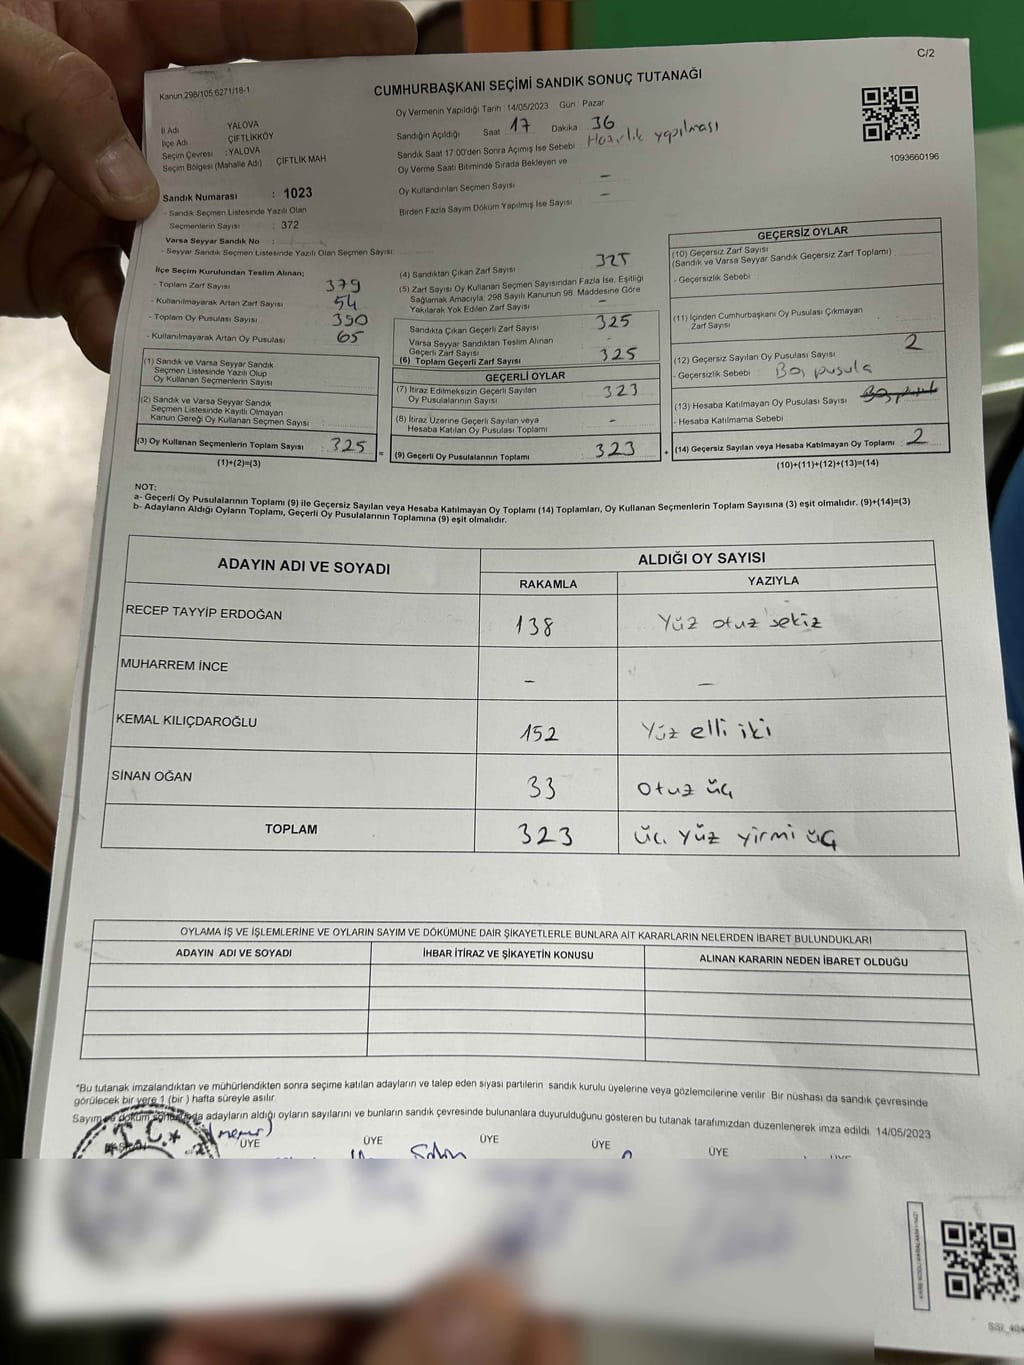 C/2
Kanun 298/105,6271/18-1
CUMHURBAŞKANI SEÇİMİ SANDIK SONUÇ TUTANAĞI
1093660196
İl Adı YALOVA
İlçe Adı ÇİFTLİKKÖY
Seçim Çevresi : YALOVA
Seçim Bölgesi (Mahalle Adı) ÇİFTLİK MAH
Sandık Numarası : 1023
- Sandık Seçmen Listesinde Yazılı Olan
Seçmenlerin Sayısı : 372
Varsa Seyyar Sandık No :
- Seyyar Sandık Seçmen Listesinde Yazılı Olan Seçmen Sayısı
Oy Vermenin Yapıldığı Tarih 14/05/2023 Gün Pazar
Sandığın Açıldığı Saat 17 Dakika 36
Sandık Saat 17:00'den Sonra Açımış İse Sebebi Hazırlık yapılması
Oy Verme Saati Bitiminde Sırada Bekleyen ve
Oy Kullandırılan Seçmen Sayısı –
Birden Fazla Sayım Döküm Yapılmış İse Sayısı –
İlçe Seçim Kurulundan Teslim Alınan;
- Toplam Zarf Sayısı 379
- Kullanılmayarak Artan Zarf Sayısı 54
- Toplam Oy Pusulası Sayısı 390
- Kullanılmayarak Artan Oy Pusulası 65
(1) Sandık ve Varsa Seyyar Sandık
Seçmen Listesinde Yazılı Olup
Oy Kullanan Seçmenlerin Sayısı
(2) Sandık ve Varsa Seyyar Sandık
Seçmen Listesinde Kayıtlı Olmayan
Kanun Gereği Oy Kullanan Seçmen Sayısı
(3) Oy Kullanan Seçmenlerin Toplam Sayısı : 325 =
(1)+(2)=(3)
(4) Sandıktan Çıkan Zarf Sayısı 325
(5) Zarf Sayısı Oy Kullanan Seçmen Sayısından Fazla İse, Eşitliği
Sağlamak Amacıyla; 298 Sayılı Kanunun 98. Maddesine Göre
Yakılarak Yok Edilen Zarf Sayısı –
Sandıkta Çıkan Geçerli Zarf Sayısı 325
Varsa Seyyar Sandıktan Teslim Alınan
Geçerli Zarf Sayısı -
(6) Toplam Geçerli Zarf Sayısı 325
GEÇERLİ OYLAR
(7) İtiraz Edilmeksizin Geçerli Sayılan
Oy Pusulalarının Sayısı 323
(8) İtiraz Üzerine Geçerli Sayılan veya
Hesaba Katılan Oy Pusulası Toplamı -
(9) Geçerli Oy Pusulalarının Toplamı 323 +
GEÇERSİZ OYLAR
(10) Geçersiz Zarf Sayısı
(Sandık ve Varsa Seyyar Sandık Geçersiz Zarf Toplamı)
- Geçersizlik Sebebi
(11) İçinden Cumhurbaşkanı Oy Pusulası Çıkmayan
Zarf Sayısı
(12) Geçersiz Sayılan Oy Pusulası Sayısı 2
- Geçersizlik Sebebi Boş pusula
(13) Hesaba Katılmayan Oy Pusulası Sayısı
- Hesaba Katılmama Sebebi
(14) Geçersiz Sayılan veya Hesaba Katılmayan Oy Toplamı 2
(10)+(11)+(12)+(13)=(14)
NOT:
a- Geçerli Oy Pusulalarının Toplamı (9) ile Geçersiz Sayılan veya Hesaba Katılmayan Oy Toplamı (14) Toplamları, Oy Kullanan Seçmenlerin Toplam Sayısına (3) eşit olmalıdır. (9)+(14)=(3)
b- Adayların Aldığı Oyların Toplamı, Geçerli Oy Pusulalarının Toplamına (9) eşit olmalıdır.
ADAYIN ADI VE SOYADI ALDIĞI OY SAYISI
RAKAMLA YAZIYLA
RECEP TAYYİP ERDOĞAN 138 Yüz otuz sekiz
MUHARREM İNCE – –
KEMAL KILIÇDAROĞLU 152 Yüz elli iki
SİNAN OĞAN 33 otuz üç
TOPLAM 323 üç yüz yirmi üç
OYLAMA İŞ VE İŞLEMLERİNE VE OYLARIN SAYIM VE DÖKÜMÜNE DAİR ŞİKAYETLERLE BUNLARA AİT KARARLARIN NELERDEN İBARET BULUNDUKLARI
ADAYIN ADI VE SOYADI İHBAR İTİRAZ VE ŞİKAYETİN KONUSU ALINAN KARARIN NEDEN İBARET OLDUĞU
*Bu tutanak imzalandıktan ve mühürlendikten sonra seçime katılan adayların ve talep eden siyasi partilerin sandık kurulu üyelerine veya gözlemcilerine verilir. Bir nüshası da sandık çevresinde
görülecek bir yere 1 (bir ) hafta süreyle asılır.
Sayım ve döküm sonucunda adayların aldığı oyların sayılarını ve bunların sandık çevresinde bulunanlara duyurulduğunu gösteren bu tutanak tarafımızdan düzenlenerek imza edildi. 14/05/2023
T.C.
(memur)
ÜYE ÜYE ÜYE ÜYE ÜYE